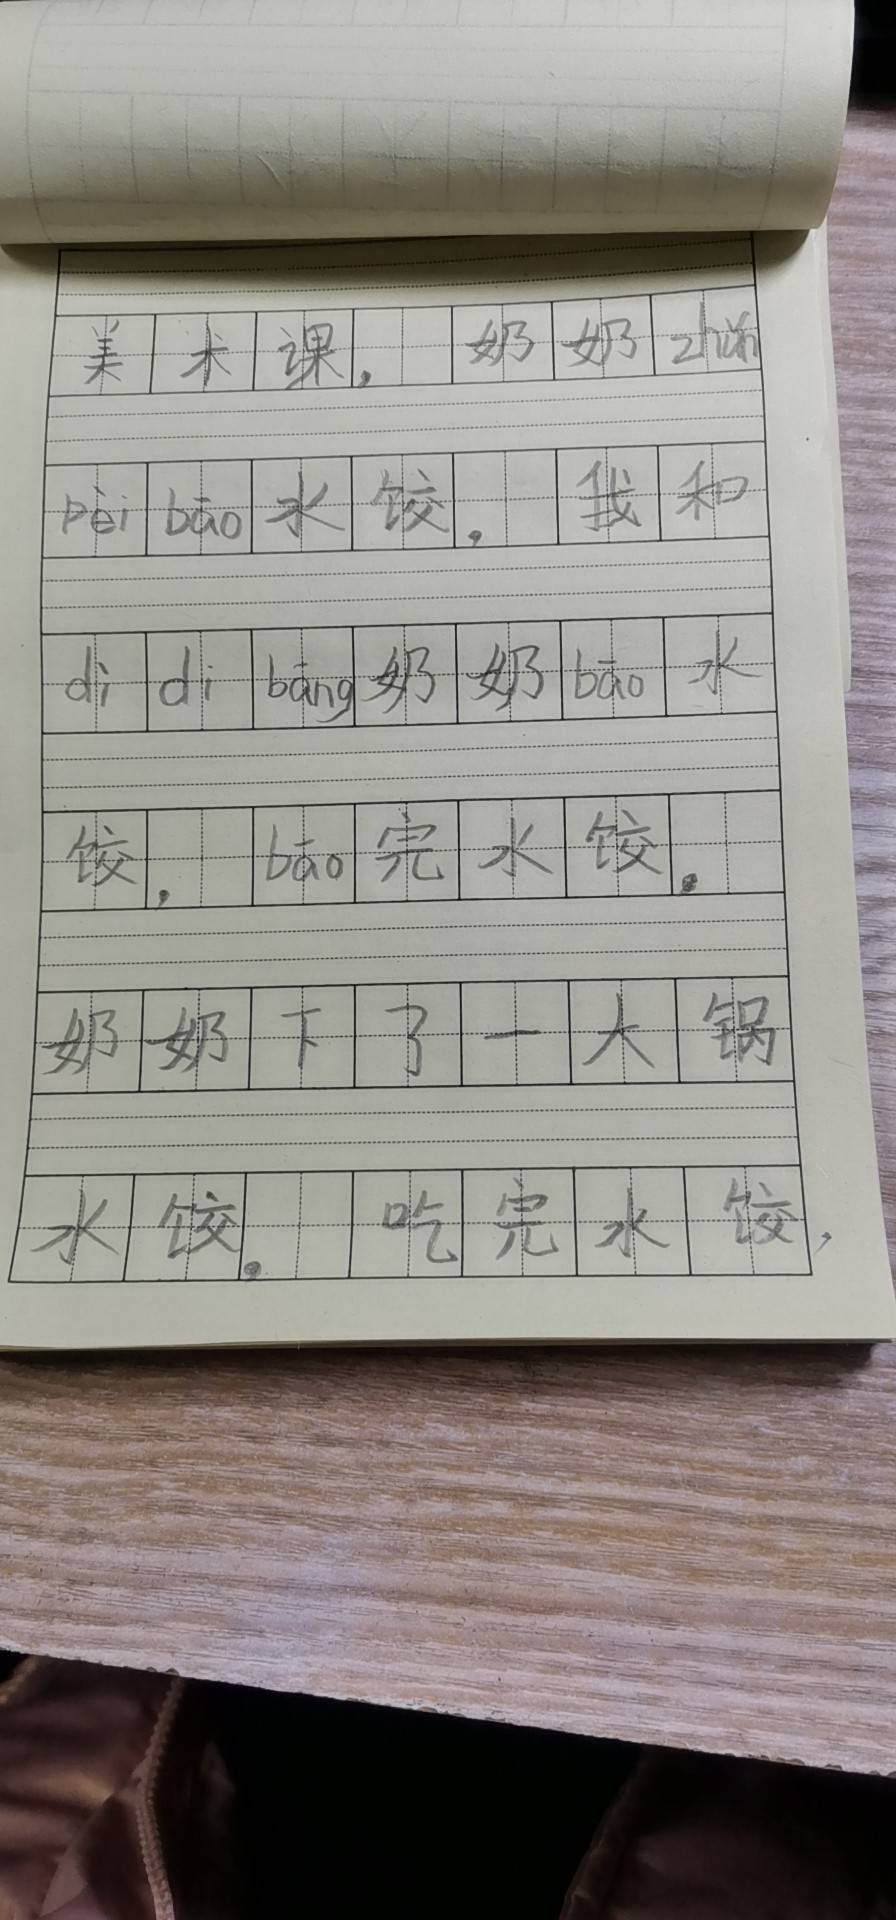 美术课，奶奶zhǔn
pèi bāo水饺，我和
dì di bāng奶奶bāo水
饺，bāo完水饺，
奶奶下了一大锅
水饺，吃完水饺，